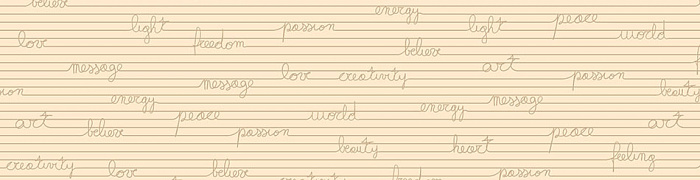 believe energy
light passion light peace
love freedom believe world
message love creativity art passion
message beauty
energy peace world energy message
art believe passion peace art
beauty heart feeling
creativity love believe passion